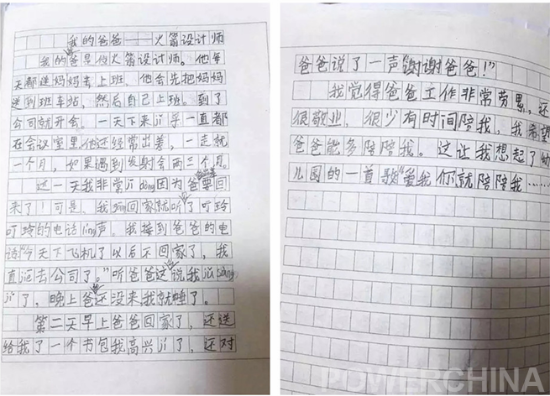 我的爸爸——火箭设计师
我的爸爸是位火箭设计师。他每
天都送妈妈去上班，他会先把妈妈
送到班车站，然后自己上班。到了
公司就开会。一天下来几乎一直都
在会议室里他还经常出差，一走就
一个月，如果遇到发射会两三个月。
这一天我非常jī dòng因为爸爸要回
来了！可是，我gāng回家就听了叮玲
叮玲的电话líng声。我接到爸爸的电
话“今天下飞机了以后不回家了，我
直 去公司了。”听爸爸这 说我
jí了，晚上爸还没来我就睡了。
第二天早上爸爸回家了，还送
给我了一个书包我高兴jí了，还对
爸爸说了一声“谢谢爸爸！”
我觉得爸爸工作非常劳累，还
很敬业，很少有时间陪我，我希望
爸爸能多陪陪我。这让我想起了幼
儿园的一首歌“爱我你就陪陪我……
POWERCHINA